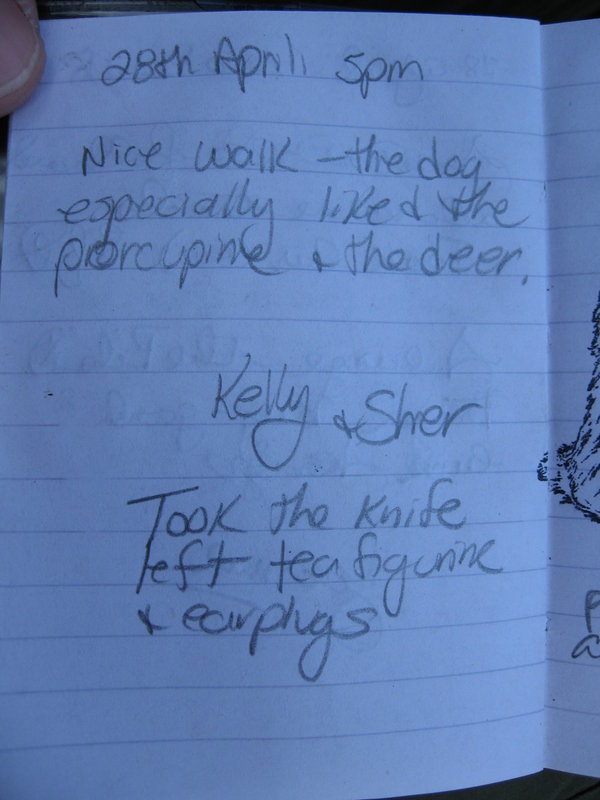 28th April 5pm
Nice walk - the dog
especially liked the
porcupine & the deer.
Kelly & Sher
Took the knife
left tea figurine
& earplugs